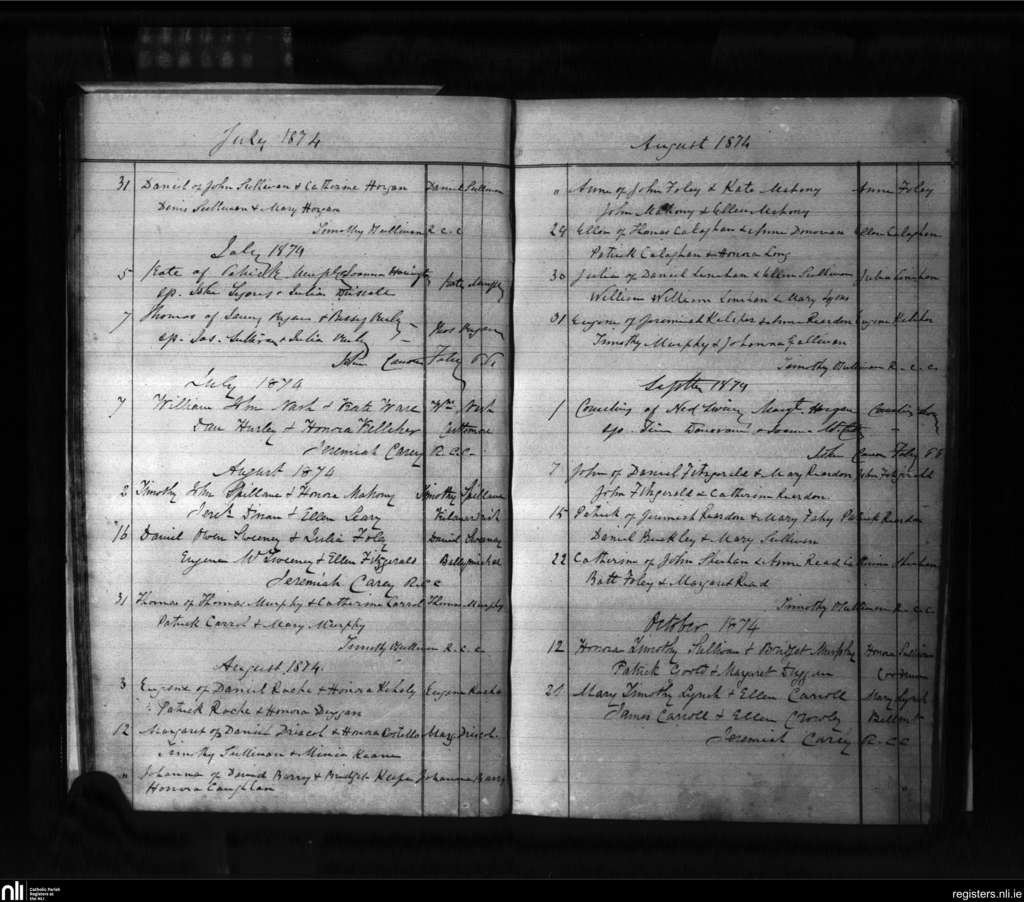 July 1874
31 Daniel of John Sullivan & Catherine Horgan Daniel Sullivan
Denis Sullivan & Mary Horgan
Timothy O'Sullivan R.C.C
July 1874
5 Kate of Patrick Murphy Joanna Kate Murphy
sp. John Lyons & Julia
7 Thomas of James Ryan & Thos Ryan
sp. Jas. Sullivan & Julia
John Canon Foley P.P.
July 1874
7 William John Nash & Kate Ware Wm Nash
Dan Hurley & Honora Kelleher
Jeremiah Carey R.C.C.
August 1874
2 Timothy John Spillane & Honora Mahony Timothy Spillane
Jerh Dinan & Ellen Leary
16 Daniel Owen Sweeney & Julia Foley Daniel Sweeney
Eugene McSweeney & Ellen Fitzgerald
Jeremiah Carey R.C.C
31 Thomas of Thomas Murphy & Catherine Carrol Thomas Murphy
Patrick Carrol & Mary Murphy
Timothy O'Sullivan R.C.C
August 1874.
3 Eugene of Daniel Roche & Honora Eugene Roche
Patrick Roche & Honora Duggan
12 Margaret of Daniel Driscol & Honora Costello Mary Driscol
Timothy Sullivan & Minia Keane
" Johanna of David Barry & Bridget Johanna Barry
Honora Caughlan
August 1874
" Anne of John Foley & Kate Mahony Anne Foley
John Mahony & Ellen Mahony
29 Ellen of Thomas Calaghan & Anne Donovan Ellen Calaghan
Patrick Calaghan & Honora Long
30 Julia of Daniel Linehan & Ellen Sullivan Julia Linehan
William William Linehan & Mary Lyons
31 Eugene of Jeremiah Keleher & Anne Reardon Eugene Keleher
Timothy Murphy & Johanna Galliven
Timothy O'Sullivan R.C.C.
Septber 1874
1 of Ned Margt Horgan
sp. Tim Donovan & Joanna
John Canon Foley P.P.
7 John of Daniel Fitzgerald & Mary Reardon John Fitzgerald
John Fitzgerald & Catherine Reardon
15 Patrick of Jeremiah Reardon & Mary Fahy Patrick Reardon
Daniel Buckley & Mary Sullivan
22 Catherine of John Sheehan & Anne Read Catherine Sheehan
Batt Foley & Margaret Read
Timothy O'Sullivan R.C.C
October 1874
12 Honora Timothy Sullivan & Bridget Murphy Honora Sullivan
Patrick Goold & Margaret Duggan
20 Mary Timothy Lynch & Ellen Carroll Mary Lynch
James Carroll & Ellen Crowley
Jeremiah Carey R.C.C
nli
Catholic Parish
Registers at
the NLI
registers.nli.ie